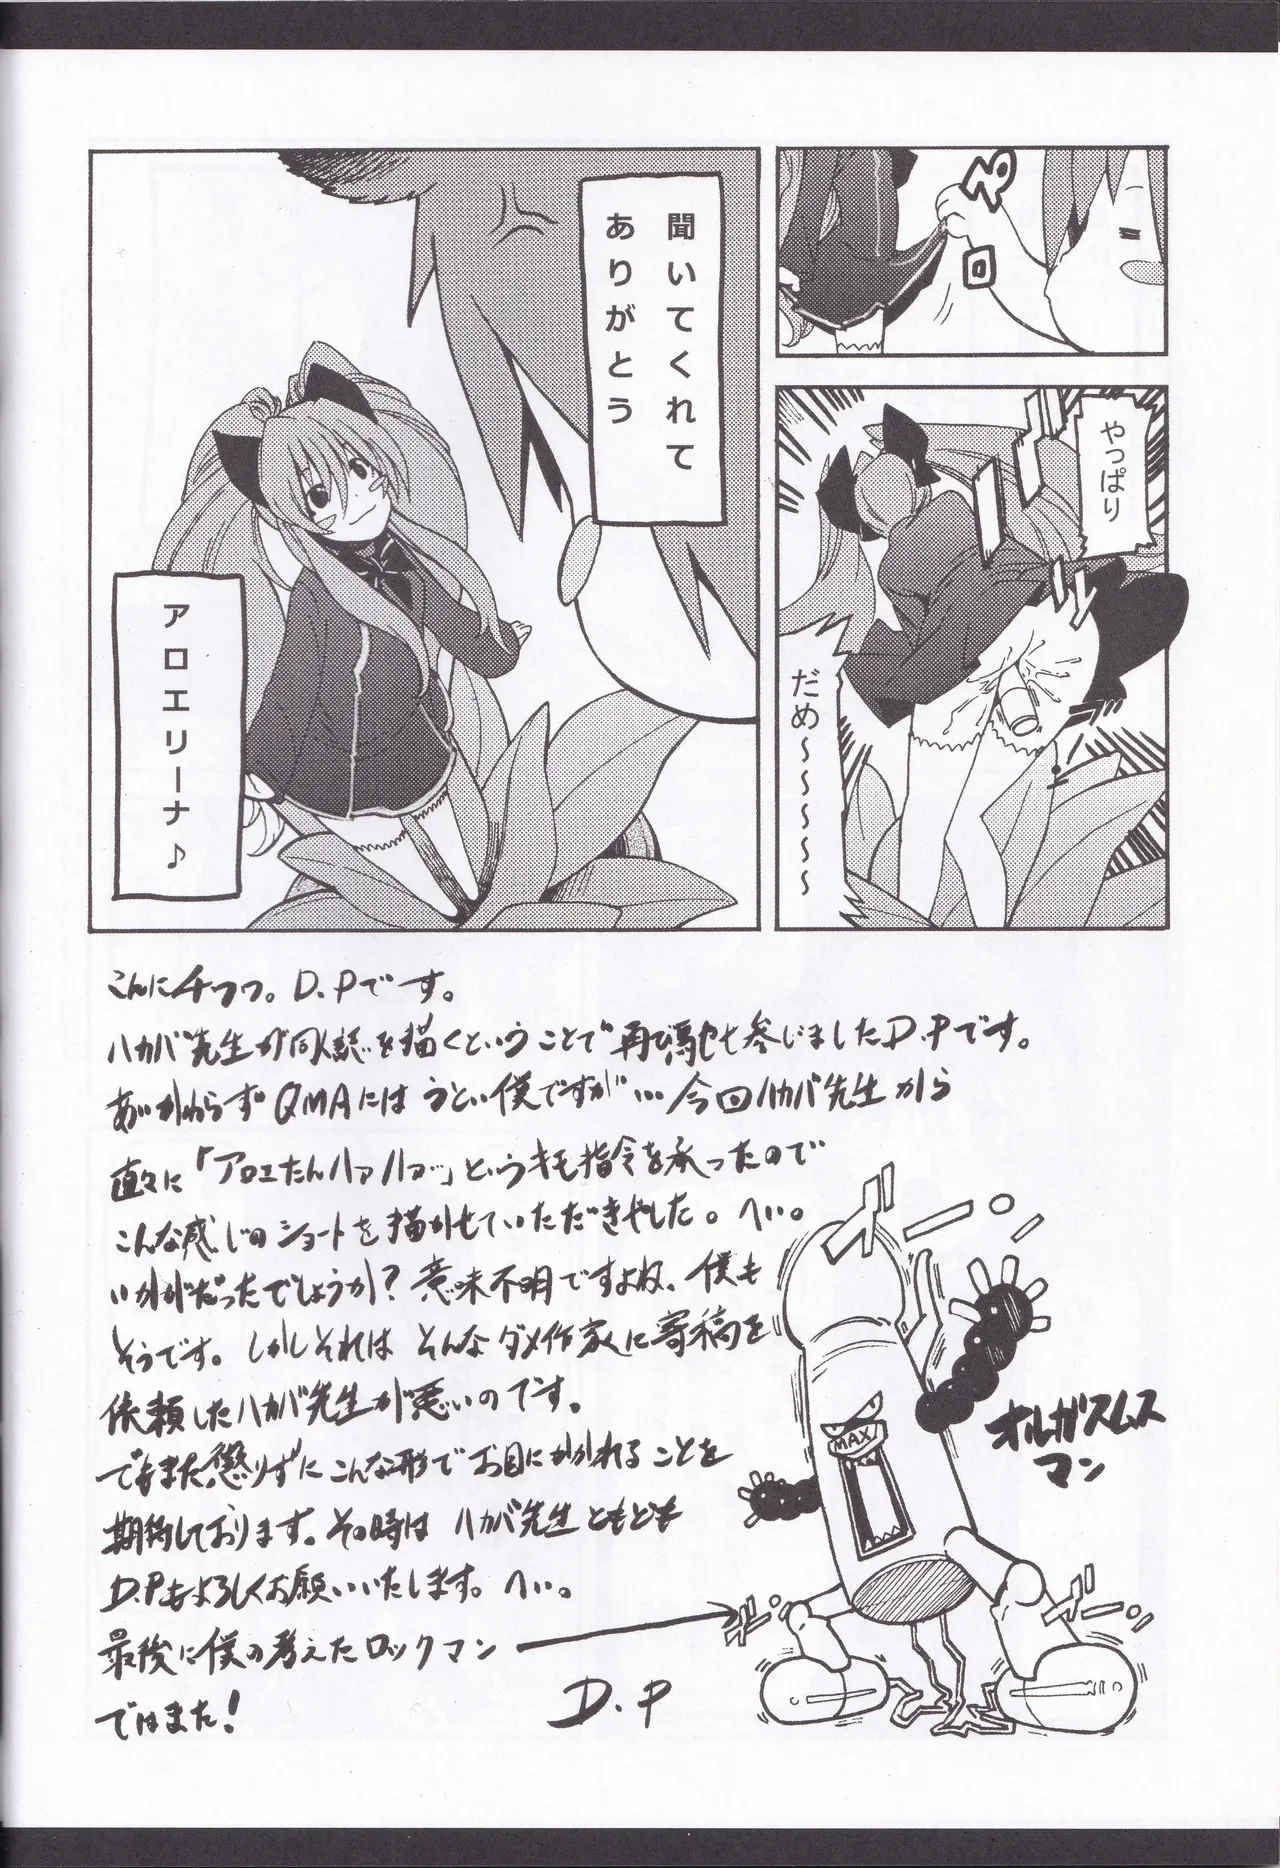 ペロ
やっぱり
だめ～～～～～
聞いてくれて
ありがとう
アロエリーナ♪
こんにチワワ。D.Pです。
ハカバ先生が同人誌を描くということで再び馳せ参じましたD.Pです。
あいかわらずQMAにはうとい僕ですが…今回ハカバ先生から
直々に「アロエたんハァハァ」というキモ指令を承ったので
こんな感じのショートを描かせていただきやした。へい。
いかがだったでしょうか？意味不明ですよね、僕も
そうです。しかしそれはそんなダメ作家に寄稿を
依頼したハカバ先生が悪いのです。
でもまた懲りずにこんな形でお目にかかれることを
期待しております。その時はハカバ先生ともども
D.Pもよろしくお願いいたします。へい。
最後に僕の考えたロックマン
ではまた！
D.P
オルガスムス
マン
MAX